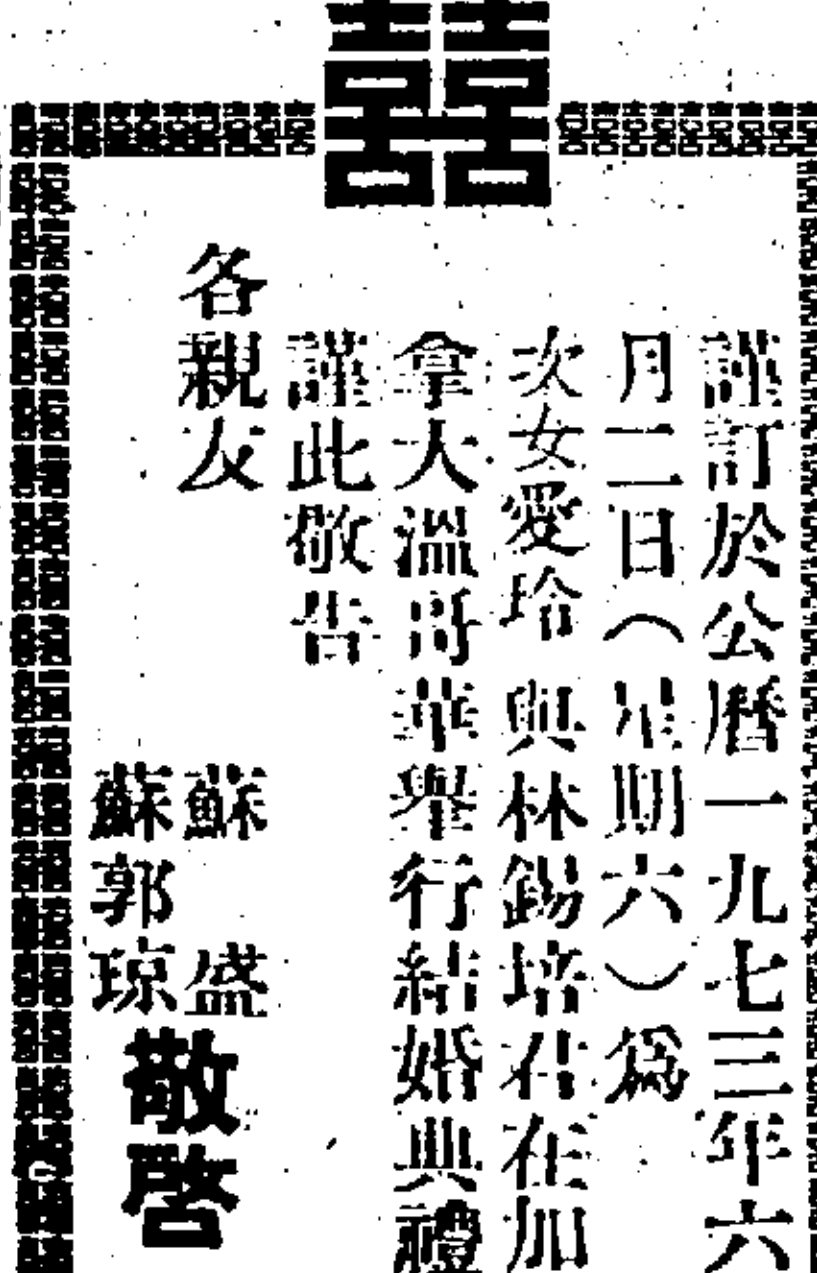 囍
謹訂於公曆一九七三年六
月二日（星期六）爲
次女愛玲與林錫培君在加
拿大溫哥華舉行結婚典禮
謹此敬告
各親友
蘇盛
蘇郭琼
敬啓